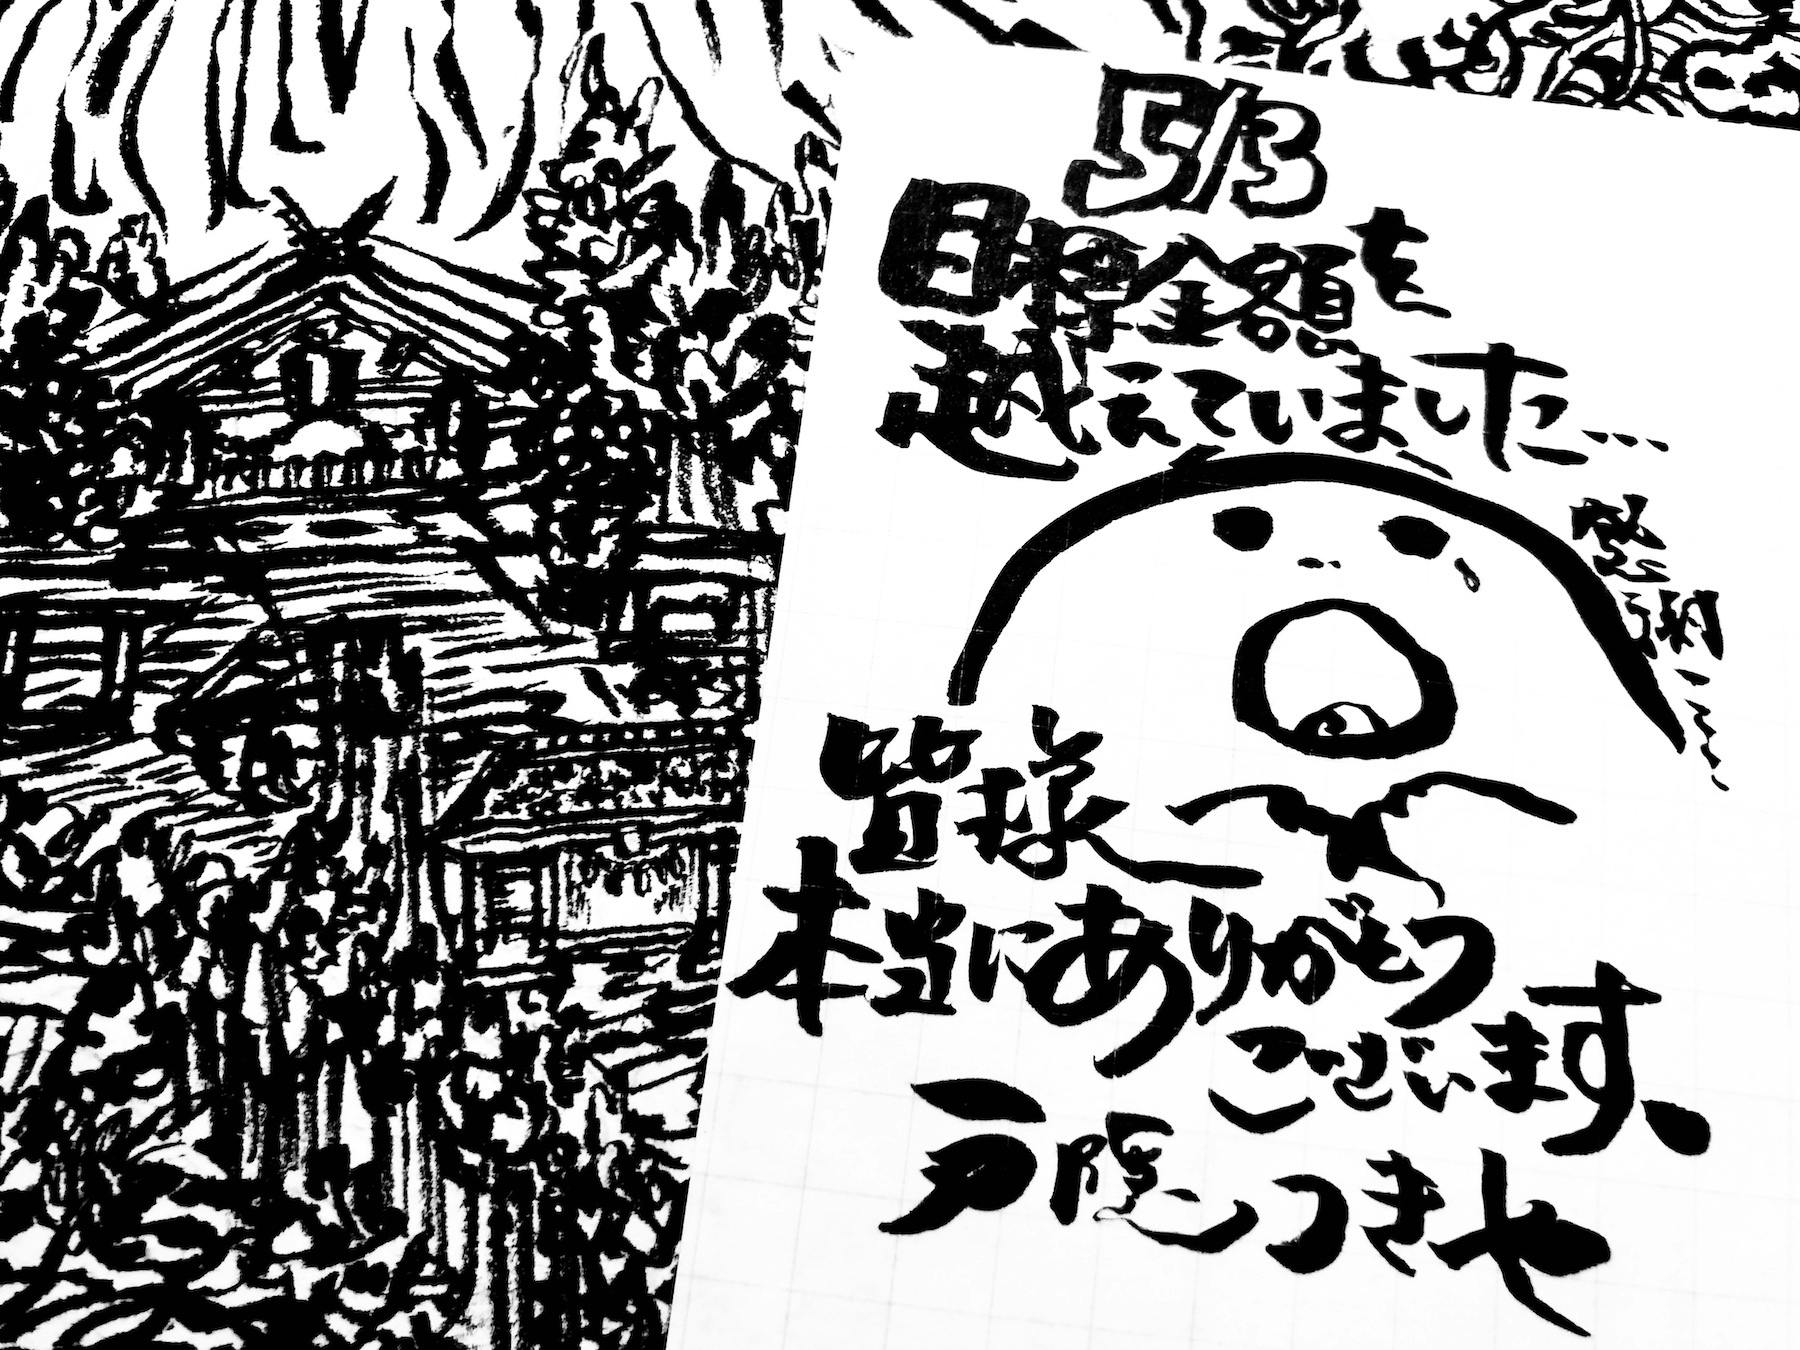 5/3
目標金額を
越えていました…
感謝…
皆様
本当にありがとう
ございます、
戸隠つきや